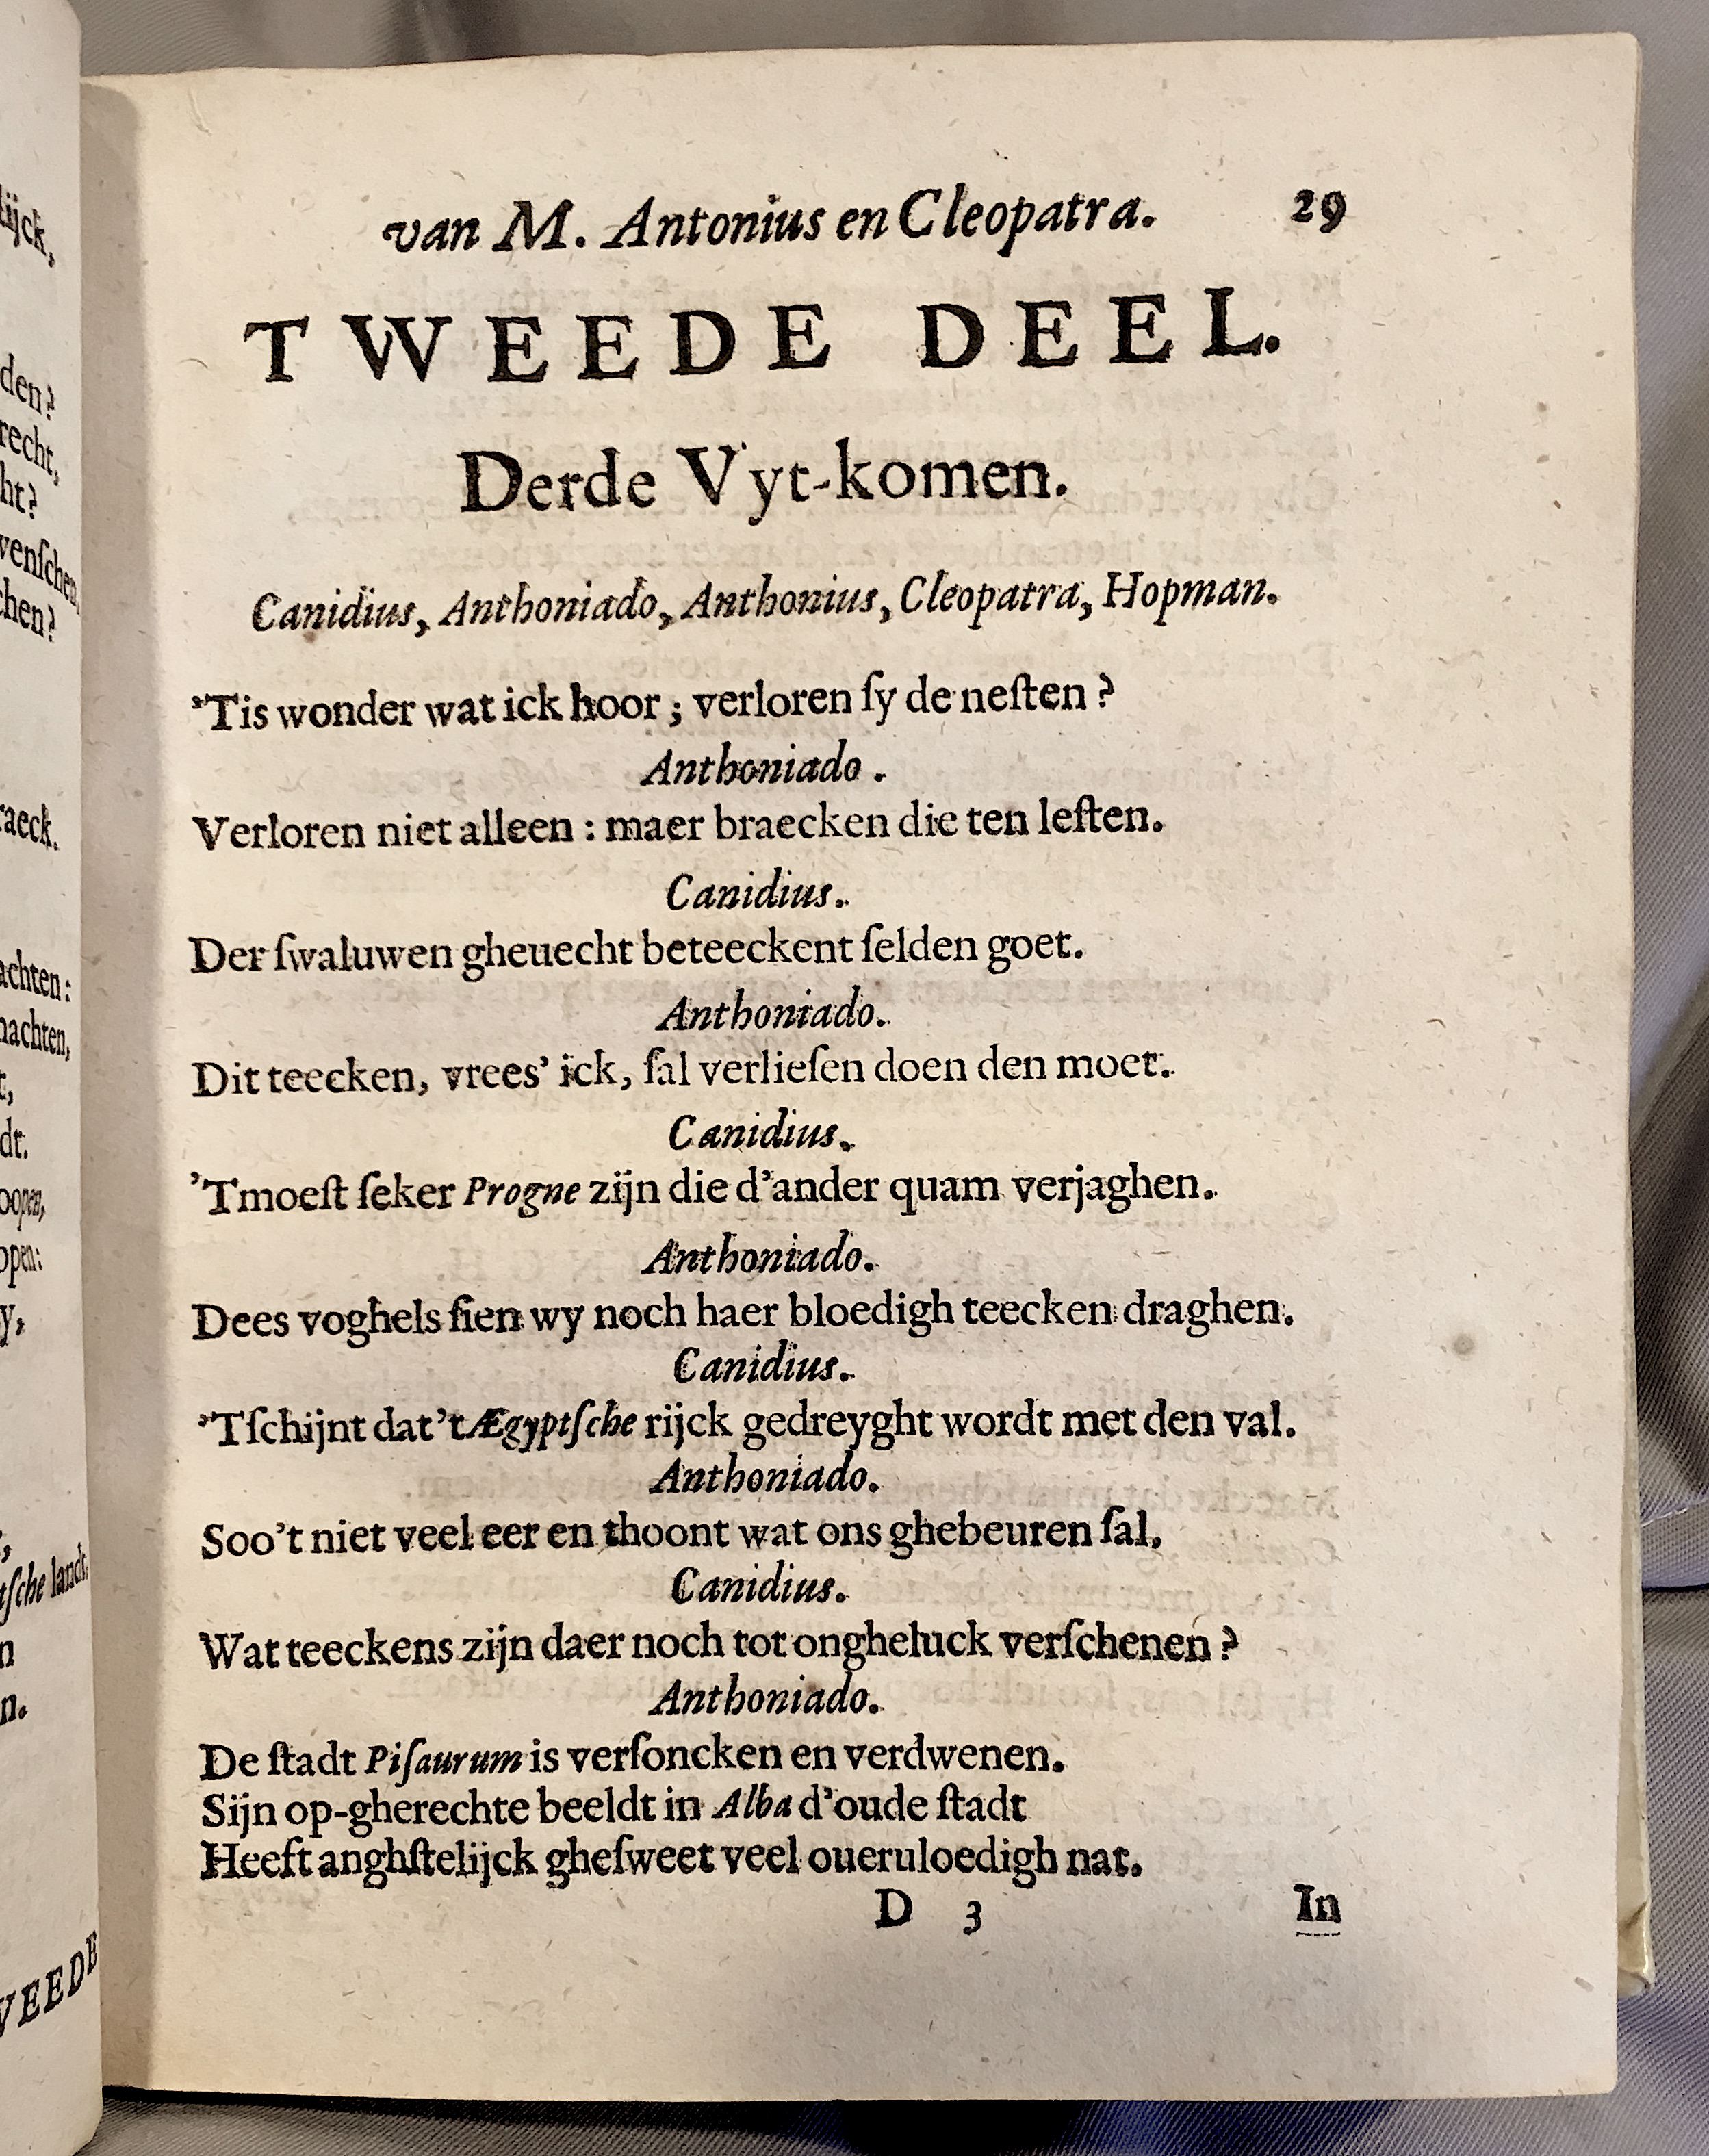 lijck,
den?
recht,
ht?
venſchen,
chen?
raeck.
achten:
nachten,
t,
dt.
oopen,
open:
y,
,
tſche landt.
n
n.
WEEDE
van M. Antonius en Cleopatra. 29
TWEEDE DEEL.
Derde Vyt-komen.
Canidius, Anthoniado, Anthonius, Cleopatra, Hopman.
'Tis wonder wat ick hoor; verloren ſy de neſten?
Anthoniado.
Verloren niet alleen: maer braecken die ten leſten.
Canidius.
Der ſwaluwen gheuecht beteeckent ſelden goet.
Anthoniado.
Dit teecken, vrees' ick, ſal verlieſen doen den moet.
Canidius.
'Tmoeſt ſeker Progne zijn die d'ander quam verjaghen.
Anthoniado.
Dees voghels ſien wy noch haer bloedigh teecken draghen.
Canidius.
'Tſchijnt dat 't Ægyptſche rijck gedreyght wordt met den val.
Anthoniado.
Soo't niet veel eer en thoont wat ons ghebeuren ſal.
Canidius.
Wat teeckens zijn daer noch tot ongheluck verſchenen?
Anthoniado.
De ſtadt Piſaurum is verſoncken en verdwenen.
Sijn op-gherechte beeldt in Alba d'oude ſtadt
Heeft anghſtelijck gheſweet veel oueruloedigh nat.
D 3 In